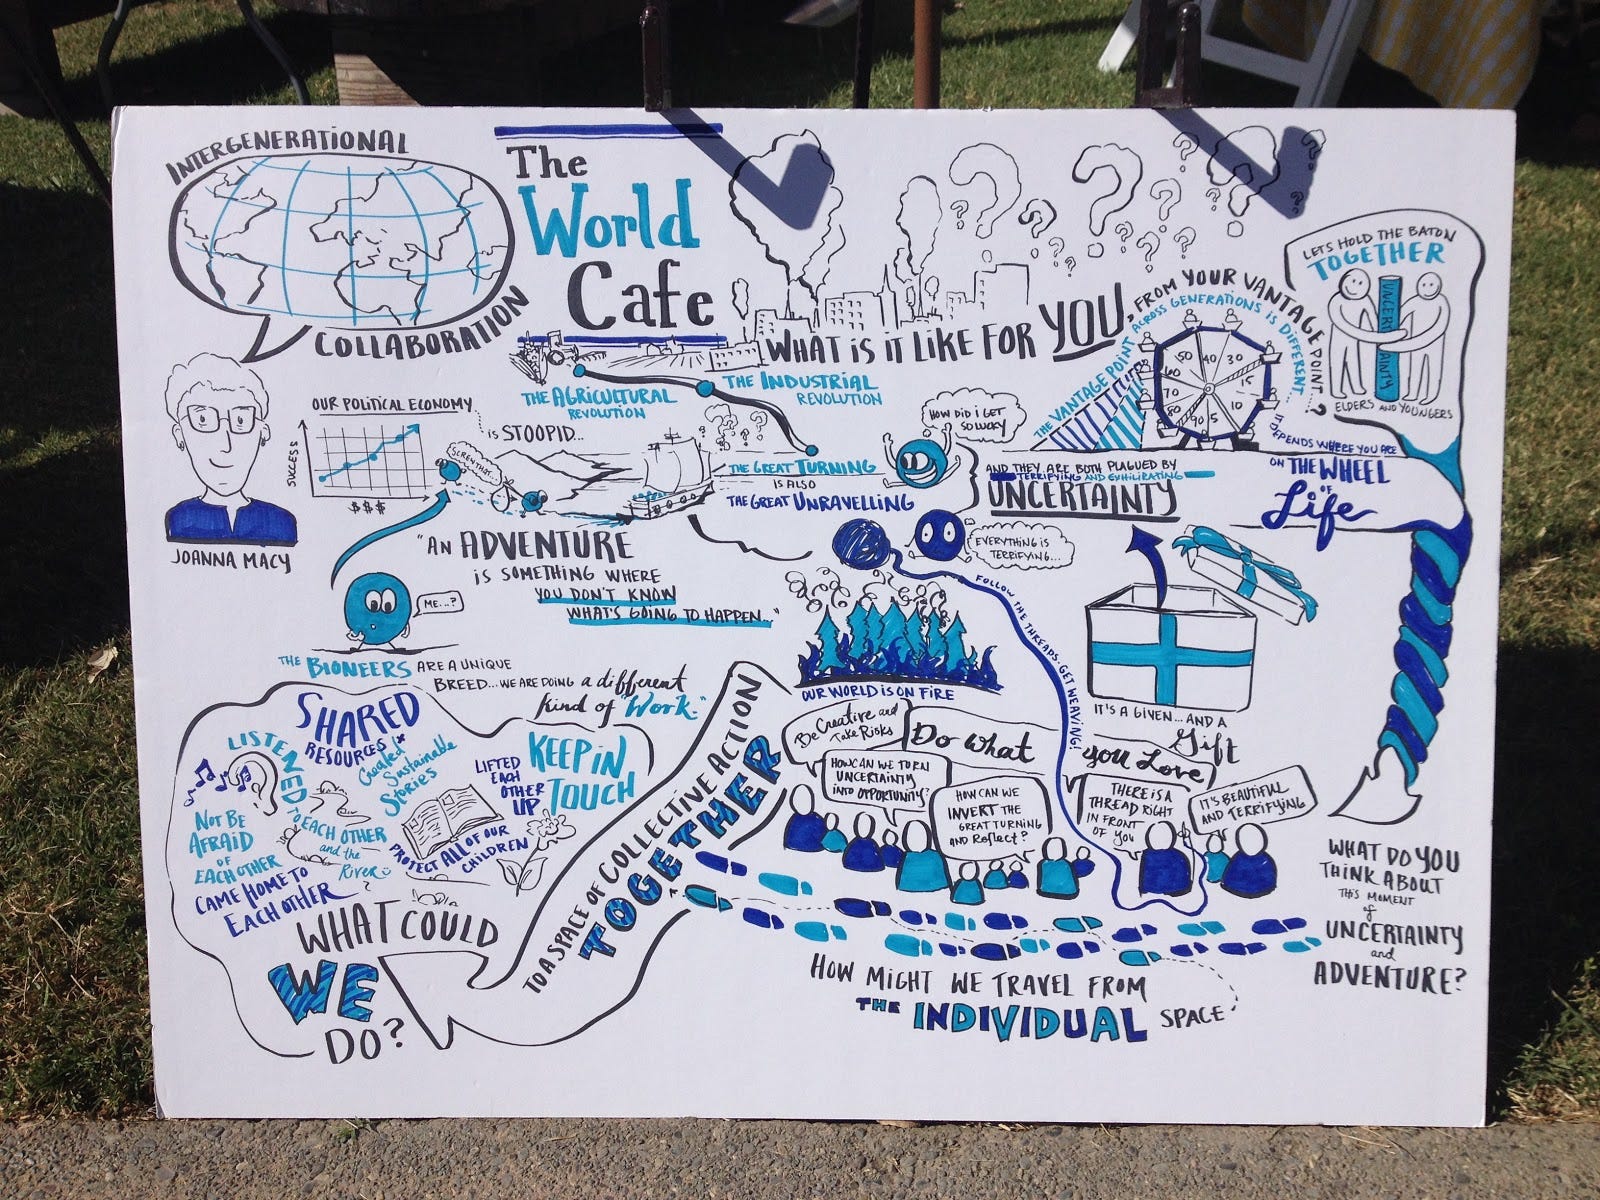 INTERGENERATIONAL
COLLABORATION
The
World
Cafe
JOANNA MACY
OUR POLITICAL ECONOMY
is STOOPID...
SUCCESS
$$$
SCREW THAT
THE AGRICULTURAL
REVOLUTION
THE INDUSTRIAL
REVOLUTION
THE GREAT TURNING
IS ALSO
THE GREAT UNRAVELLING
"AN ADVENTURE
is SOMETHING WHERE
YOU DON'T KNOW
WHAT'S GOING TO HAPPEN..."
ME...?
THE BIONEERS ARE A UNIQUE
BREED... WE ARE DOING a different
kind of "Work."
WHAT IS IT LIKE FOR YOU, FROM YOUR VANTAGE POINT?
THE VANTAGE POINT ACROSS GENERATIONS IS DIFFERENT
DEPENDS WHERE YOU ARE
ON THE WHEEL
OF
Life
50 40 30
60 15
70 10
80 90 5
LETS HOLD THE BATON
TOGETHER
UNCERTAINTY
ELDERS AND YOUNGERS
HOW DID I GET
SO LUCKY
AND THEY ARE BOTH PLAGUED BY
TERRIFYING AND EXHILIRATING
UNCERTAINTY
EVERYTHING IS
TERRIFYING...
FOLLOW THE THREADS. GET WEAVING!
OUR WORLD IS ON FIRE
IT'S A GIVEN... AND A
Gift
WHAT DO YOU
THINK ABOUT
THIS MOMENT
of
UNCERTAINTY
and
ADVENTURE?
Be Creative and
Take Risks
Do What
you Love
HOW CAN WE TURN
UNCERTAINTY
INTO OPPORTUNITY?
HOW CAN WE
INVERT THE
GREAT TURNING
AND Reflect?
THERE IS A
THREAD RIGHT
IN FRONT
OF YOU
IT'S BEAUTIFUL
AND TERRIFYING
HOW MIGHT WE TRAVEL FROM
THE INDIVIDUAL SPACE
TO A SPACE OF COLLECTIVE ACTION
TOGETHER
WHAT COULD
WE
DO?
SHARED
RESOURCES
Created
Sustainable
Stories
LISTENED TO EACH OTHER
and the
River
NOT BE
AFRAID
OF
EACH OTHER
CAME HOME TO
EACH OTHER
LIFTED
EACH
OTHER
UP
KEEP IN
TOUCH
PROTECT ALL OF OUR
CHILDREN